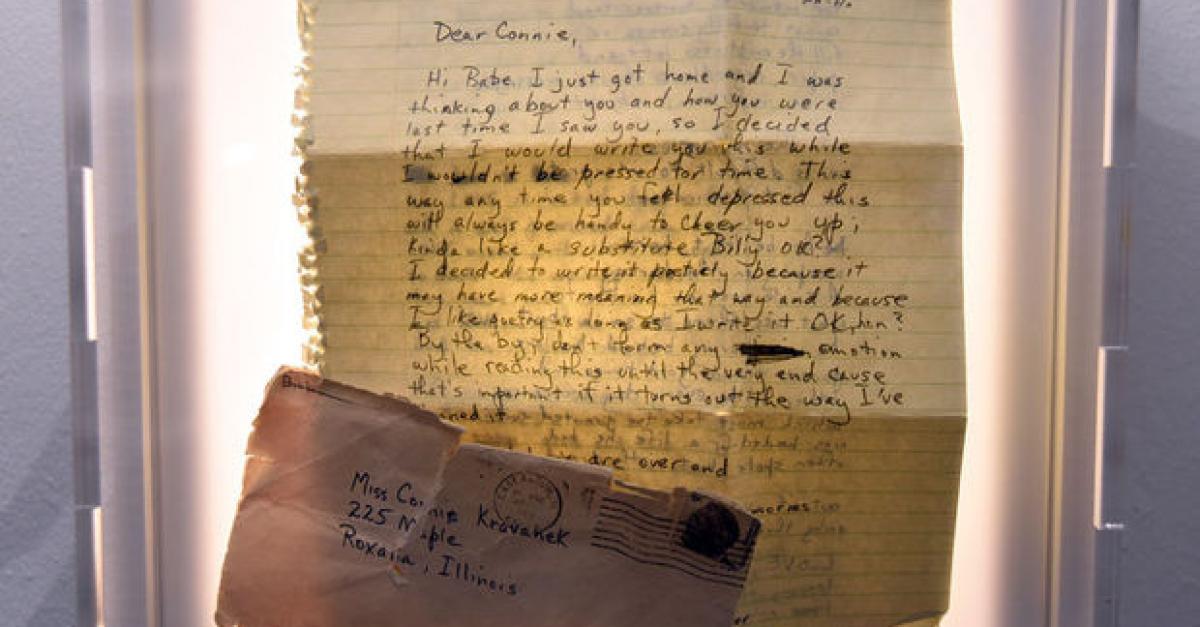 Dear Connie,
Hi Babe. I just got home and I was
thinking about you and how you were
last time I saw you, so I decided
that I would write you this while
I wouldn't be pressed for time. This
way any time you feel depressed this
will always be handy to cheer you up;
kinda like a substitute Billy OK?
I decided to write it poeticly because it
may have more meaning that way and because
I like poetry as long as I write it OK, hon?
By the by, don't form any emotion
while reading this until the very end cause
that's important if it turns out the way I've
are over and
Miss Connie Kravanek
225 Maple
Roxana, Illinois